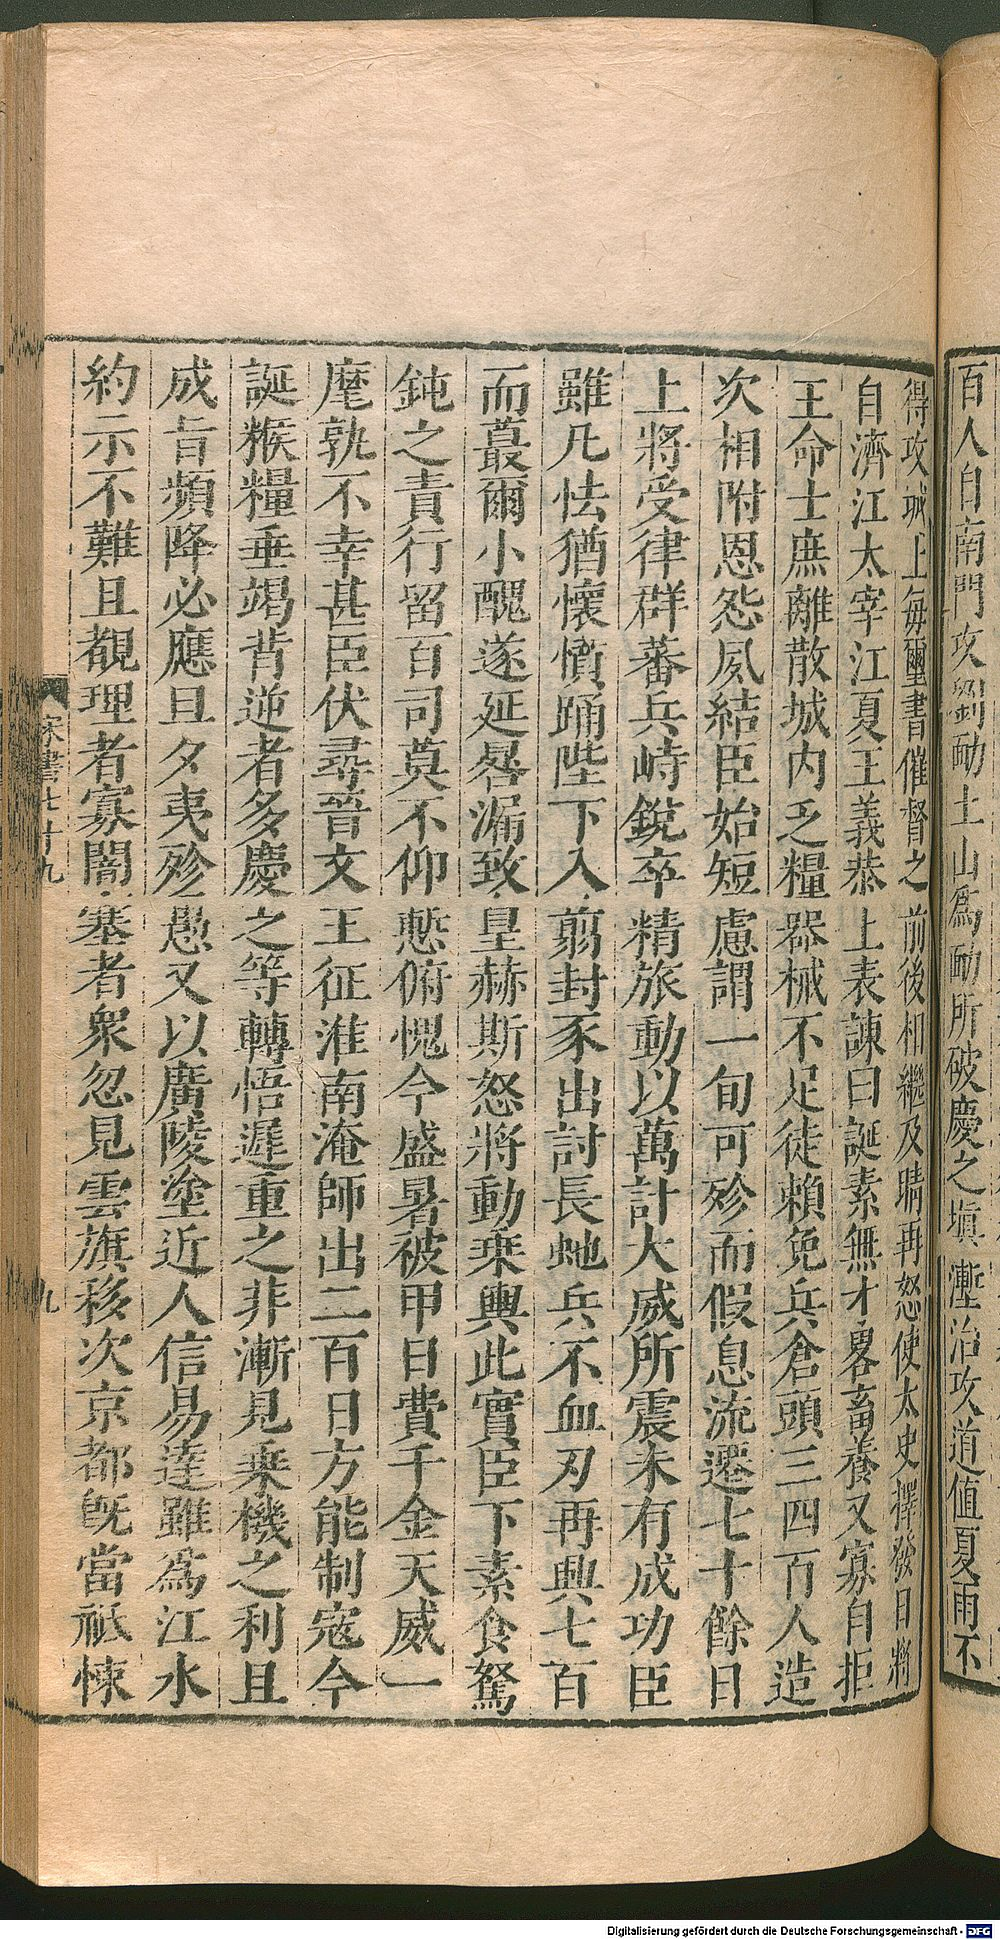 百人自南門攻劉勔土山爲勔所破慶之塡塹治攻道值夏雨不
得攻城上每璽書催督之前後相繼及晴再怒使太史擇發日將
自濟江太宰江夏王義恭上表諫曰誕素無才畧畜養又寡自拒
王命士庶離散城内乏糧器械不足徒賴免兵倉頭三四百人造
次相附恩怨夙結臣始短慮謂一旬可殄而假息流遷七十餘日
上將受律群蕃兵峙鋭卒精旅動以萬計大威所震未有成功臣
雖凡怯猶懷憤踊陛下入翦封豕出討長虵兵不血刃再興七百
而蕞爾小醜遂延晷漏致皇赫斯怒將動乗輿此實臣下素食駑
鈍之責行留百司莫不仰慙俯愧今盛暑被甲日費千金天威一
麾孰不幸甚臣伏尋晉文王征淮南淹師出二百日方能制寇今
誕糇糧垂竭背逆者多慶之等轉悟遲重之非漸見乗機之利且
成旨頻降必應旦夕夷殄愚又以廣陵塗近人信易達雖爲江水
約示不難且覩理者寡闇塞者衆忽見雲旗移次京都旣當祗悚
宋書七十九
九
Digitalisierung gefördert durch die Deutsche Forschungsgemeinschaft - DFG